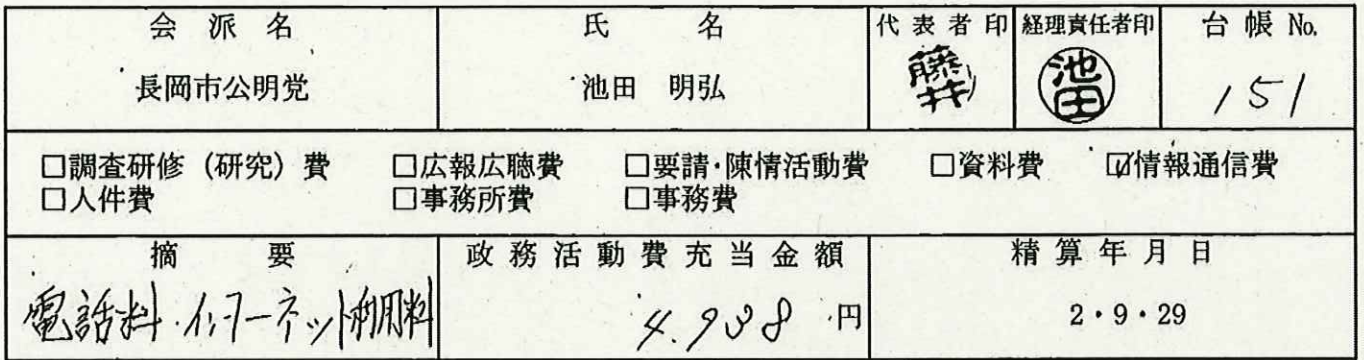 会派名 氏名 代表者印 経理責任者印 台帳No.
長岡市公明党 池田 明弘 藤井 池田 151
□調査研修（研究）費 □広報広聴費 □要請・陳情活動費 □資料費 ☑情報通信費
□人件費 □事務所費 □事務費
摘要 政務活動費充当金額 精算年月日
電話料・インターネット利用料 4,938 円 2・9・29